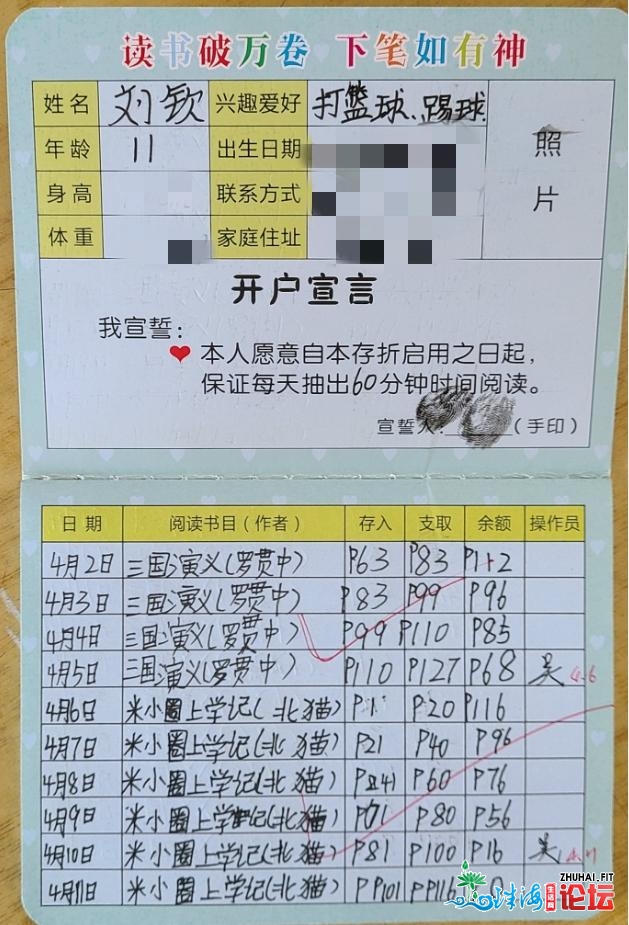 读书破万卷 下笔如有神
姓名 刘钦 兴趣爱好 打篮球、踢球 照片
年龄 11 出生日期
身高 联系方式
体重 家庭住址
开户宣言
我宣誓：
本人愿意自本存折启用之日起，
保证每天抽出60分钟时间阅读。
宣誓人：（手印）
日期 阅读书目（作者） 存入 支取 余额 操作员
4月2日 三国演义(罗贯中) P63 P83 P112
4月3日 三国演义(罗贯中) P83 P99 P96
4月4日 三国演义(罗贯中) P99 P110 P85
4月5日 三国演义(罗贯中) P110 P127 P68 吴 4.6
4月6日 米小圈上学记(北猫) P1 P20 P116
4月7日 米小圈上学记(北猫) P21 P40 P96
4月8日 米小圈上学记(北猫) P60 P76
4月9日 米小圈上学记(北猫) P80 P56
4月10日 米小圈上学记(北猫) P81 P100 P16 吴
4月11日 米小圈上学记(北猫) P101 P116 0
ZHUHAI.FIT
珠海生活网论坛